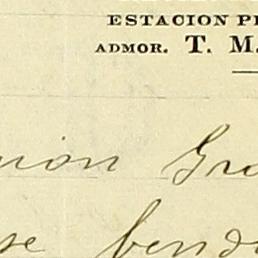 ESTACION P
ADMOR. T. M.
nion Gra
se bend